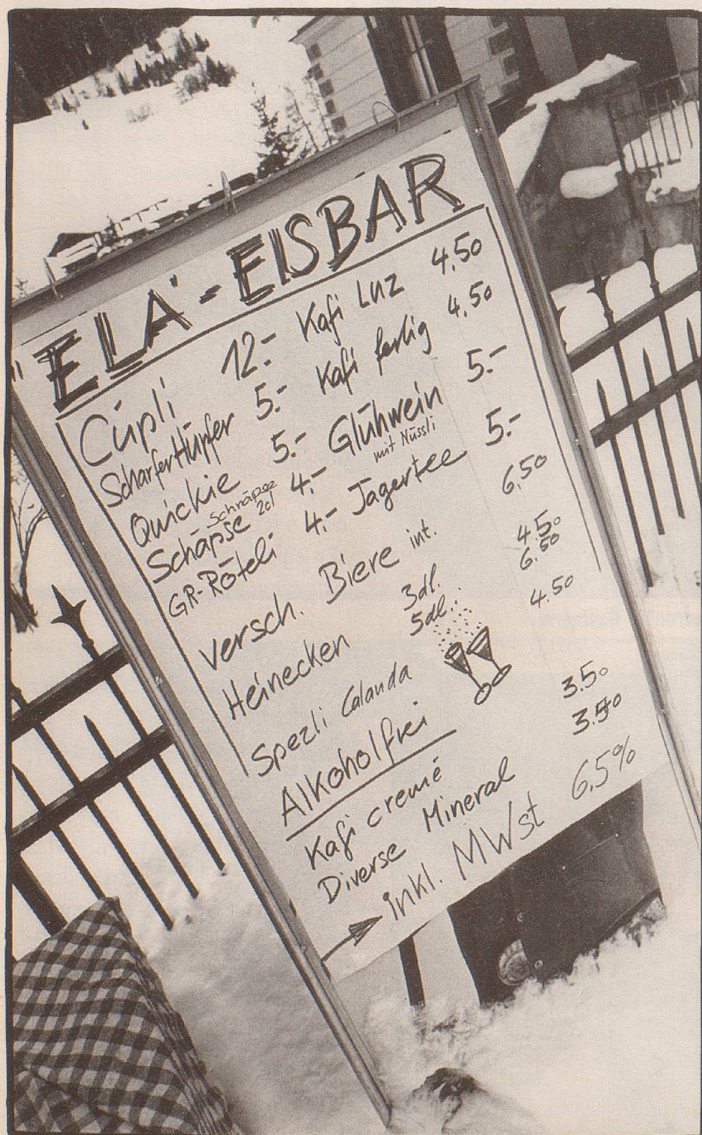 "ELA" - EISBAR
Cüpli 12.- Kafi Luz 4.50
Scharfer Hüpfer 5.- Kafi fertig 4.50
Quickie 5.- Glühwein 5.-
mit Nüssli
Schäpse Schnäpse 2cl 4.- Jägertee 5.-
GR-Röteli 4.-
versch. Biere int. 6.50
Heinecken 3dl. 4.50
5dl. 6.50
Spezli Calanda 4.50
Alkoholfrei
Kafi cremé 3.50
Diverse Mineral 3.50
inkl. MWst 6,5%